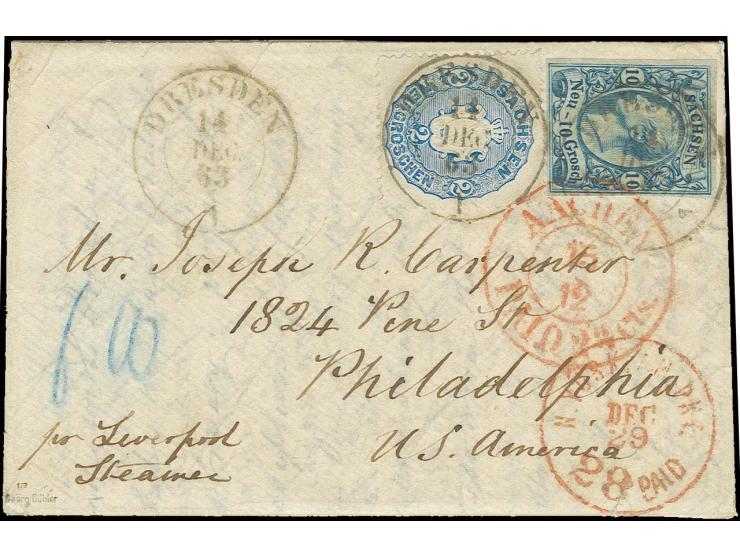 DRESDEN
14
DEC
63
SACHSEN
NEUGROSCHEN
2
2
14
DEC
63
10
10
SACHSEN
Neu-10.Grosch
10
AACHEN
12
PAID
cts.
Mr. Joseph R. Carpenter
1824 Pine St
Philadelphia
U.S. America
pr Liverpool
Steamer
N.
DEC
29
28
PAID